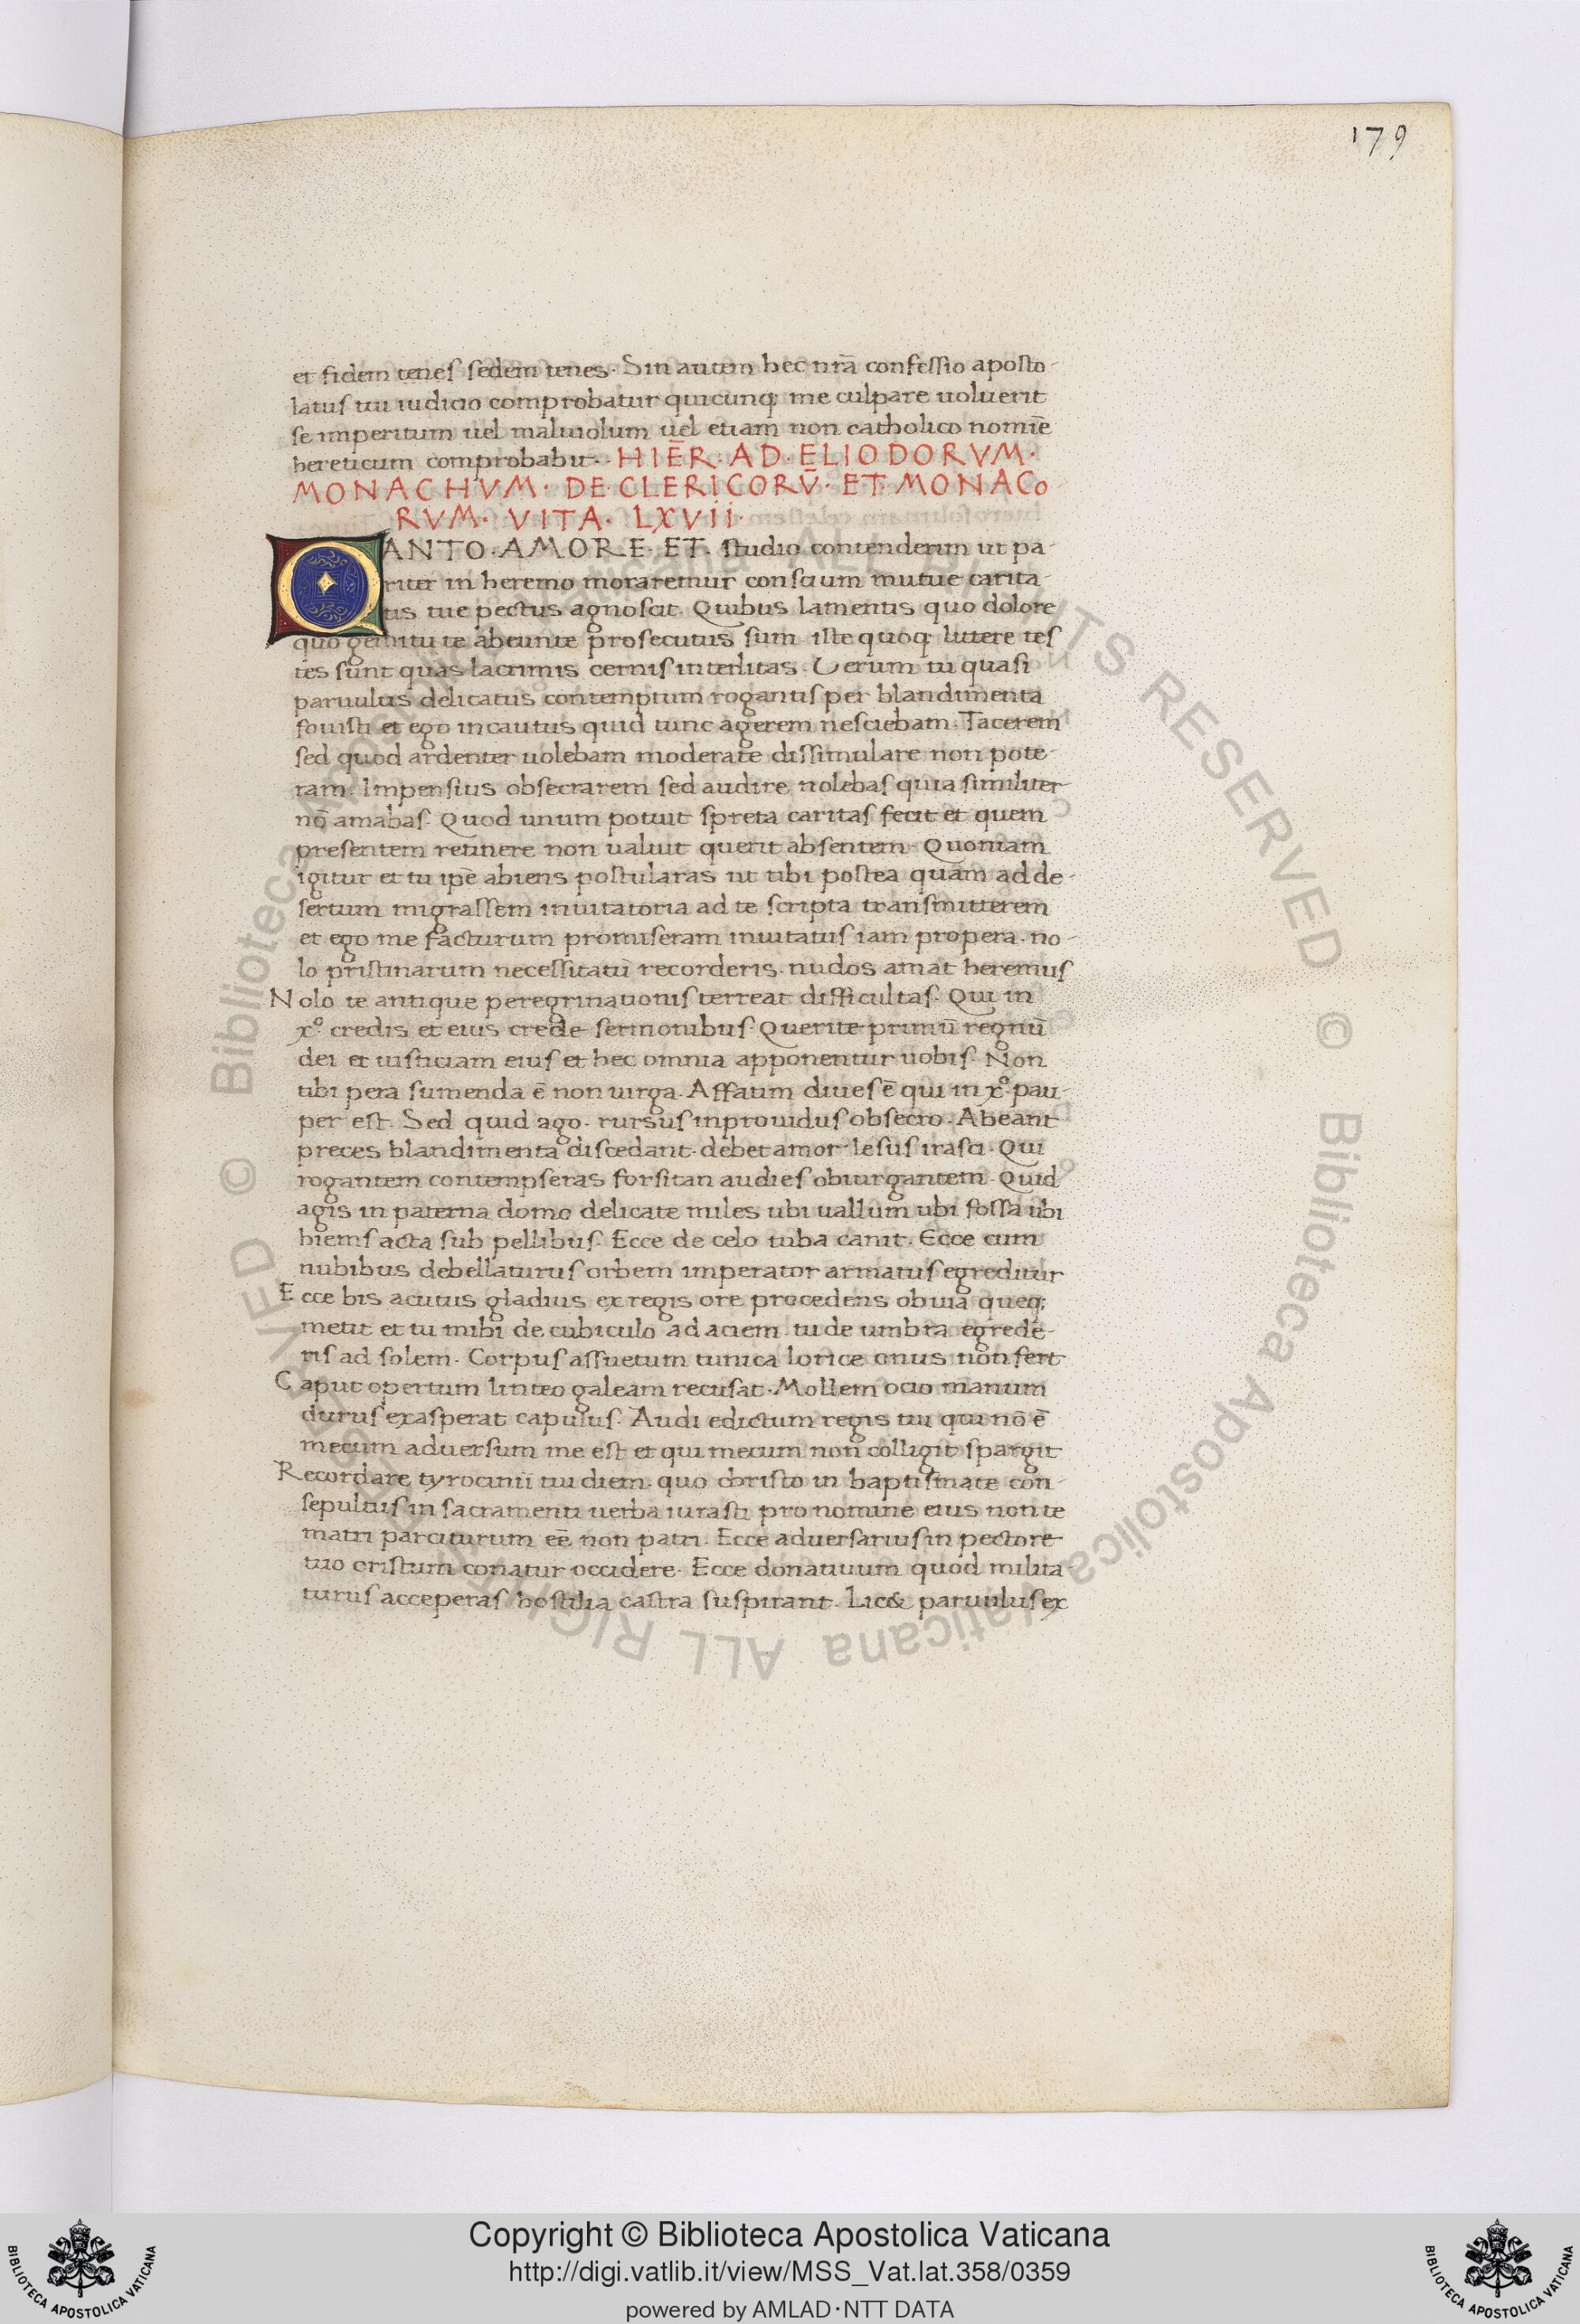 179
et fidem tenes sedem tenes. Sin autem hec nr̄a confessio aposto-
latus tui iudicio comprobatur quicunq; me culpare uoluerit
se imperitum uel maliuolum uel etiam non catholico nomīe
hereticum comprobabit. HIĒR. AD. ELIODORVM.
MONACHVM. DE CLERICORV̄. ET. MONACO
RVM. VITA. LXVII.
QANTO. AMORE. ET. studio contenderim ut pa-
riter in heremo moraremur conscium mutue carita-
tis tue pectus agnoscit. Quibus lamentis quo dolore
quo gemitu te abeunte prosecutus sum iste quoq; littere tes
tes sunt quas lacrimis cernis interlitas. Verum tu quasi
paruulus delicatus contemptum rogantis per blandimenta
fouisti et ego incautus quid tunc agerem nesciebam. Tacerem
sed quod ardenter uolebam moderate dissimulare non pote-
ram. Impensius obsecrarem sed audire nolebas quia similiter
nō amabas. Quod unum potuit spreta caritas fecit et quem
presentem retinere non ualuit querit absentem. Quoniam
igitur et tu ip̄e abiens postularas ut tibi postea quam ad de-
sertum migrassem inuitatoria ad te scripta transmitterem
et ego me facturum promiseram inuitatus iam propera. no-
lo pristinarum necessitatū recorderis. nudos amat heremus
Nolo te antique peregrinationis terreat difficultas. Qui in
xº credis et eius crede sermonibus. Querite primū regnū
dei et iusticiam eius et hec omnia apponentur uobis. Non
tibi pera sumenda ē non uirga. Affatim diues ē qui in xº pau-
per est. Sed quid ago. rursus inprouidus obsecro. Abeant
preces blandimenta discedant. debet amor lesus irasci. Qui
rogantem contempseras forsitan audies obiurgantem. Quid
agis in paterna domo delicate miles ubi uallum ubi fossa ubi
hiems acta sub pellibus. Ecce de celo tuba canit. Ecce cum
nubibus debellaturus orbem imperator armatus egreditur
Ecce bis acutus gladius ex regis ore procedens obuia queq;
metit et tu mihi de cubiculo ad aciem tu de umbra egrede-
ris ad solem. Corpus assuetum tunica lorice onus non fert
Caput opertum linteo galeam recusat. Mollem ocio manum
durus exasperat capulus. Audi edictum regis tui qui nō ē
mecum aduersum me est et qui mecum non colligit spargit
Recordare tyrocinii tui diem. quo christo in baptismate con-
sepultus in sacramenti uerba iurasti pro nomine eius non te
matri parciturum eē non patri. Ecce aduersarius in pectore
tuo cristum conatur occidere. Ecce donatiuum quod milita-
turus acceperas hostilia castra suspirant. Lic& paruulus ex
© Biblioteca Apostolica Vaticana ALL RIGHTS RESERVED © Biblioteca Apostolica Vaticana ALL RIGHTS RESERVED
Copyright © Biblioteca Apostolica Vaticana
http://digi.vatlib.it/view/MSS_Vat.lat.358/0359
powered by AMLAD·NTT DATA
BIBLIOTECA APOSTOLICA VATICANA
BIBLIOTECA APOSTOLICA VATICANA